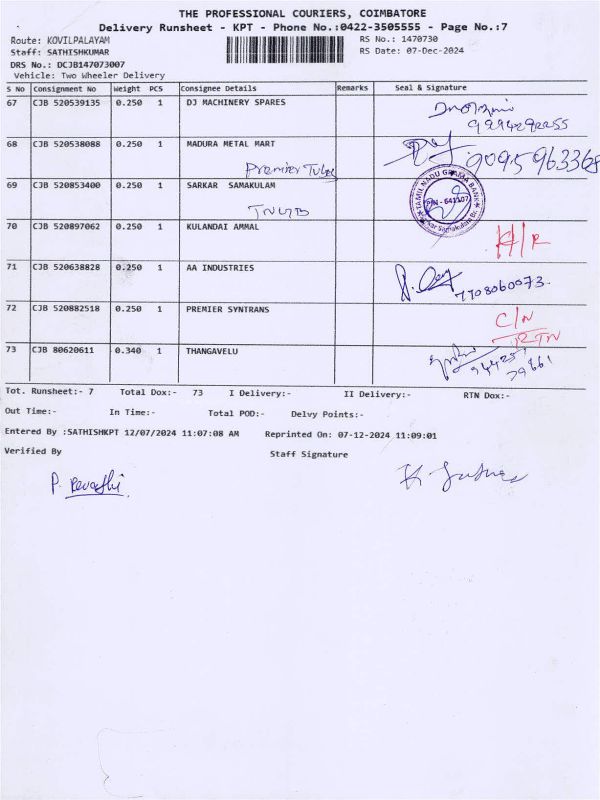 THE PROFESSIONAL COURIERS, COIMBATORE
Delivery Runsheet - KPT - Phone No.:0422-3505555 - Page No.:7
Route: KOVILPALAYAM RS No.: 1470730
Staff: SATHISHKUMAR RS Date: 07-Dec-2024
DRS No.: DCJB147073007
Vehicle: Two Wheeler Delivery
S No Consignment No Weight PCS Consignee Details Remarks Seal & Signature
67 CJB 520539135 0.250 1 DJ MACHINERY SPARES
68 CJB 520538088 0.250 1 MADURA METAL MART
9095963368
Premier Tubes
69 CJB 520853400 0.250 1 SARKAR SAMAKULAM
TAMIL NADU GRAMA BANK
PIN - 641107
TNGB
70 CJB 520897062 0.250 1 KULANDAI AMMAL
71 CJB 520638828 0.250 1 AA INDUSTRIES
7708060073.
72 CJB 520882518 0.250 1 PREMIER SYNTRANS
C/N
RTN
73 CJB 80620611 0.340 1 THANGAVELU
Tot. Runsheet:- 7 Total Dox:- 73 I Delivery:- II Delivery:- RTN Dox:-
Out Time:- In Time:- Total POD:- Delvy Points:-
Entered By :SATHISHKPT 12/07/2024 11:07:08 AM Reprinted On: 07-12-2024 11:09:01
Verified By Staff Signature
P. Revathi